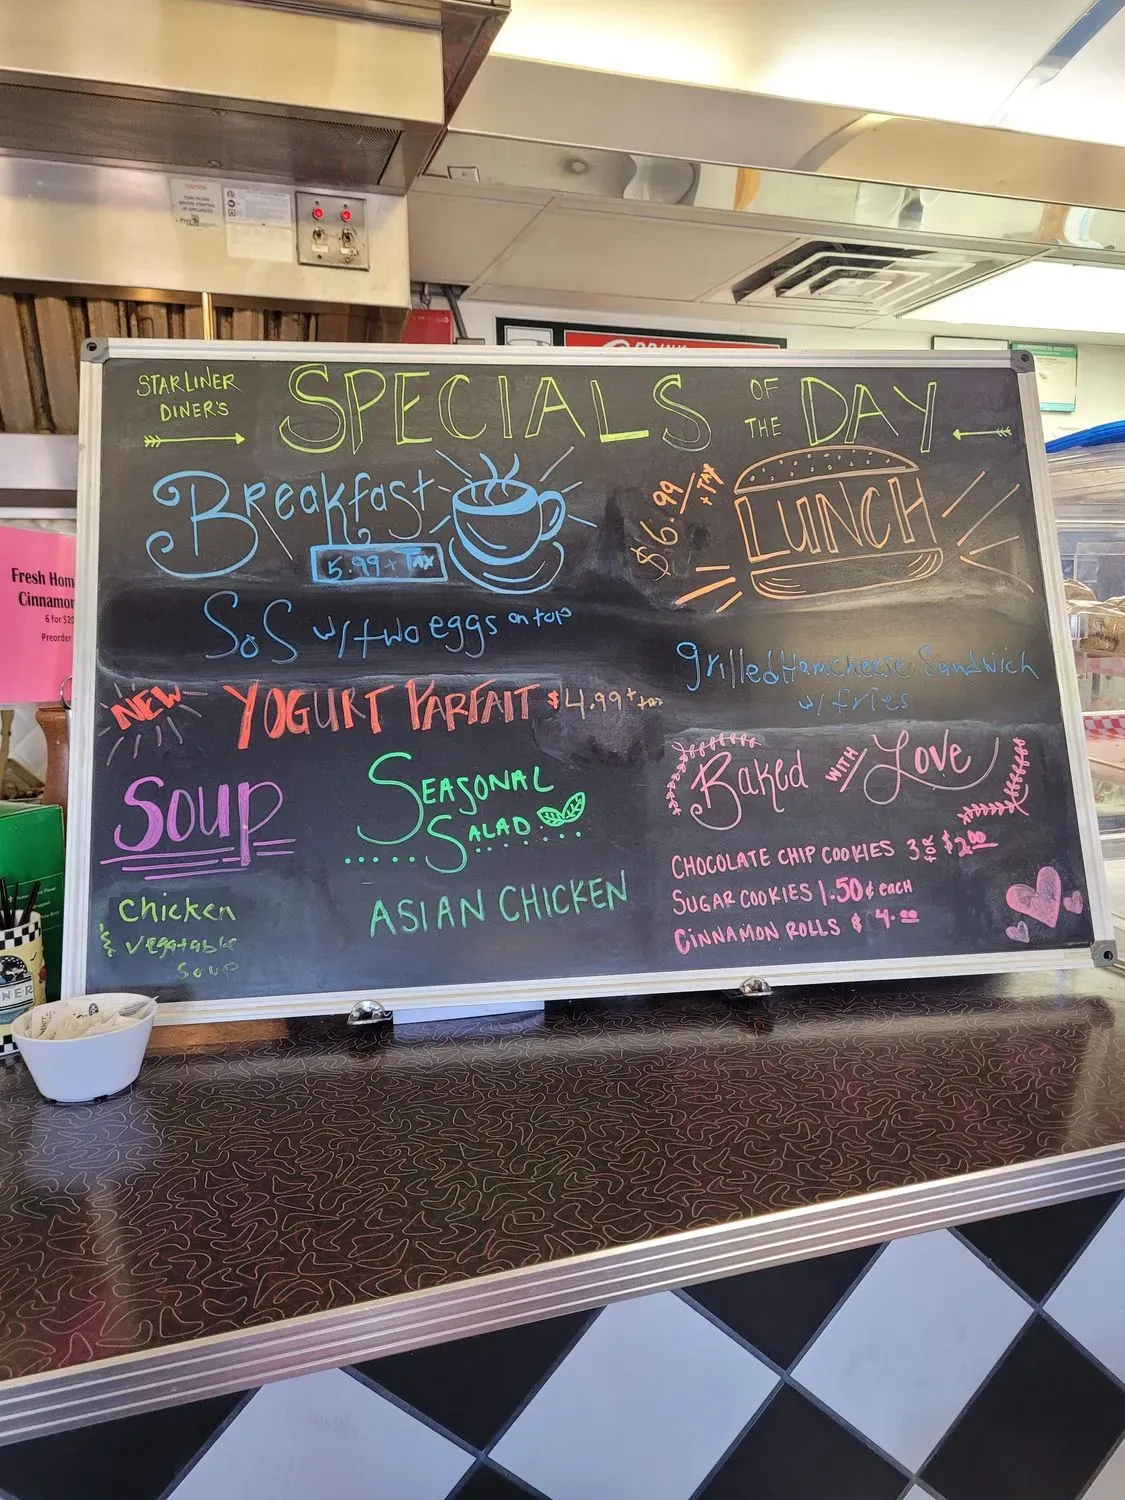 CAUTION
TURN ON FAN
BEFORE STARTING
UP APPLIANCES
STARLINER
DINER'S
SPECIALS OF THE DAY
Breakfast
5.99 + TAX
SOS w/ two eggs on top
$6.99 + TAX
LUNCH
grilled Ham cheese Sandwich
w/ fries
NEW YOGURT PARFAIT $4.99 + tax
SOUP
Chicken
Vegatable
Soup
SEASONAL
SALAD
ASIAN CHICKEN
Baked WITH Love
CHOCOLATE CHIP COOKIES 3 FOR $2.00
SUGAR COOKIES 1.50¢ each
CINNAMON ROLLS $4.00
Fresh Hom
Cinnamon
6 for $20
Preorder
NER